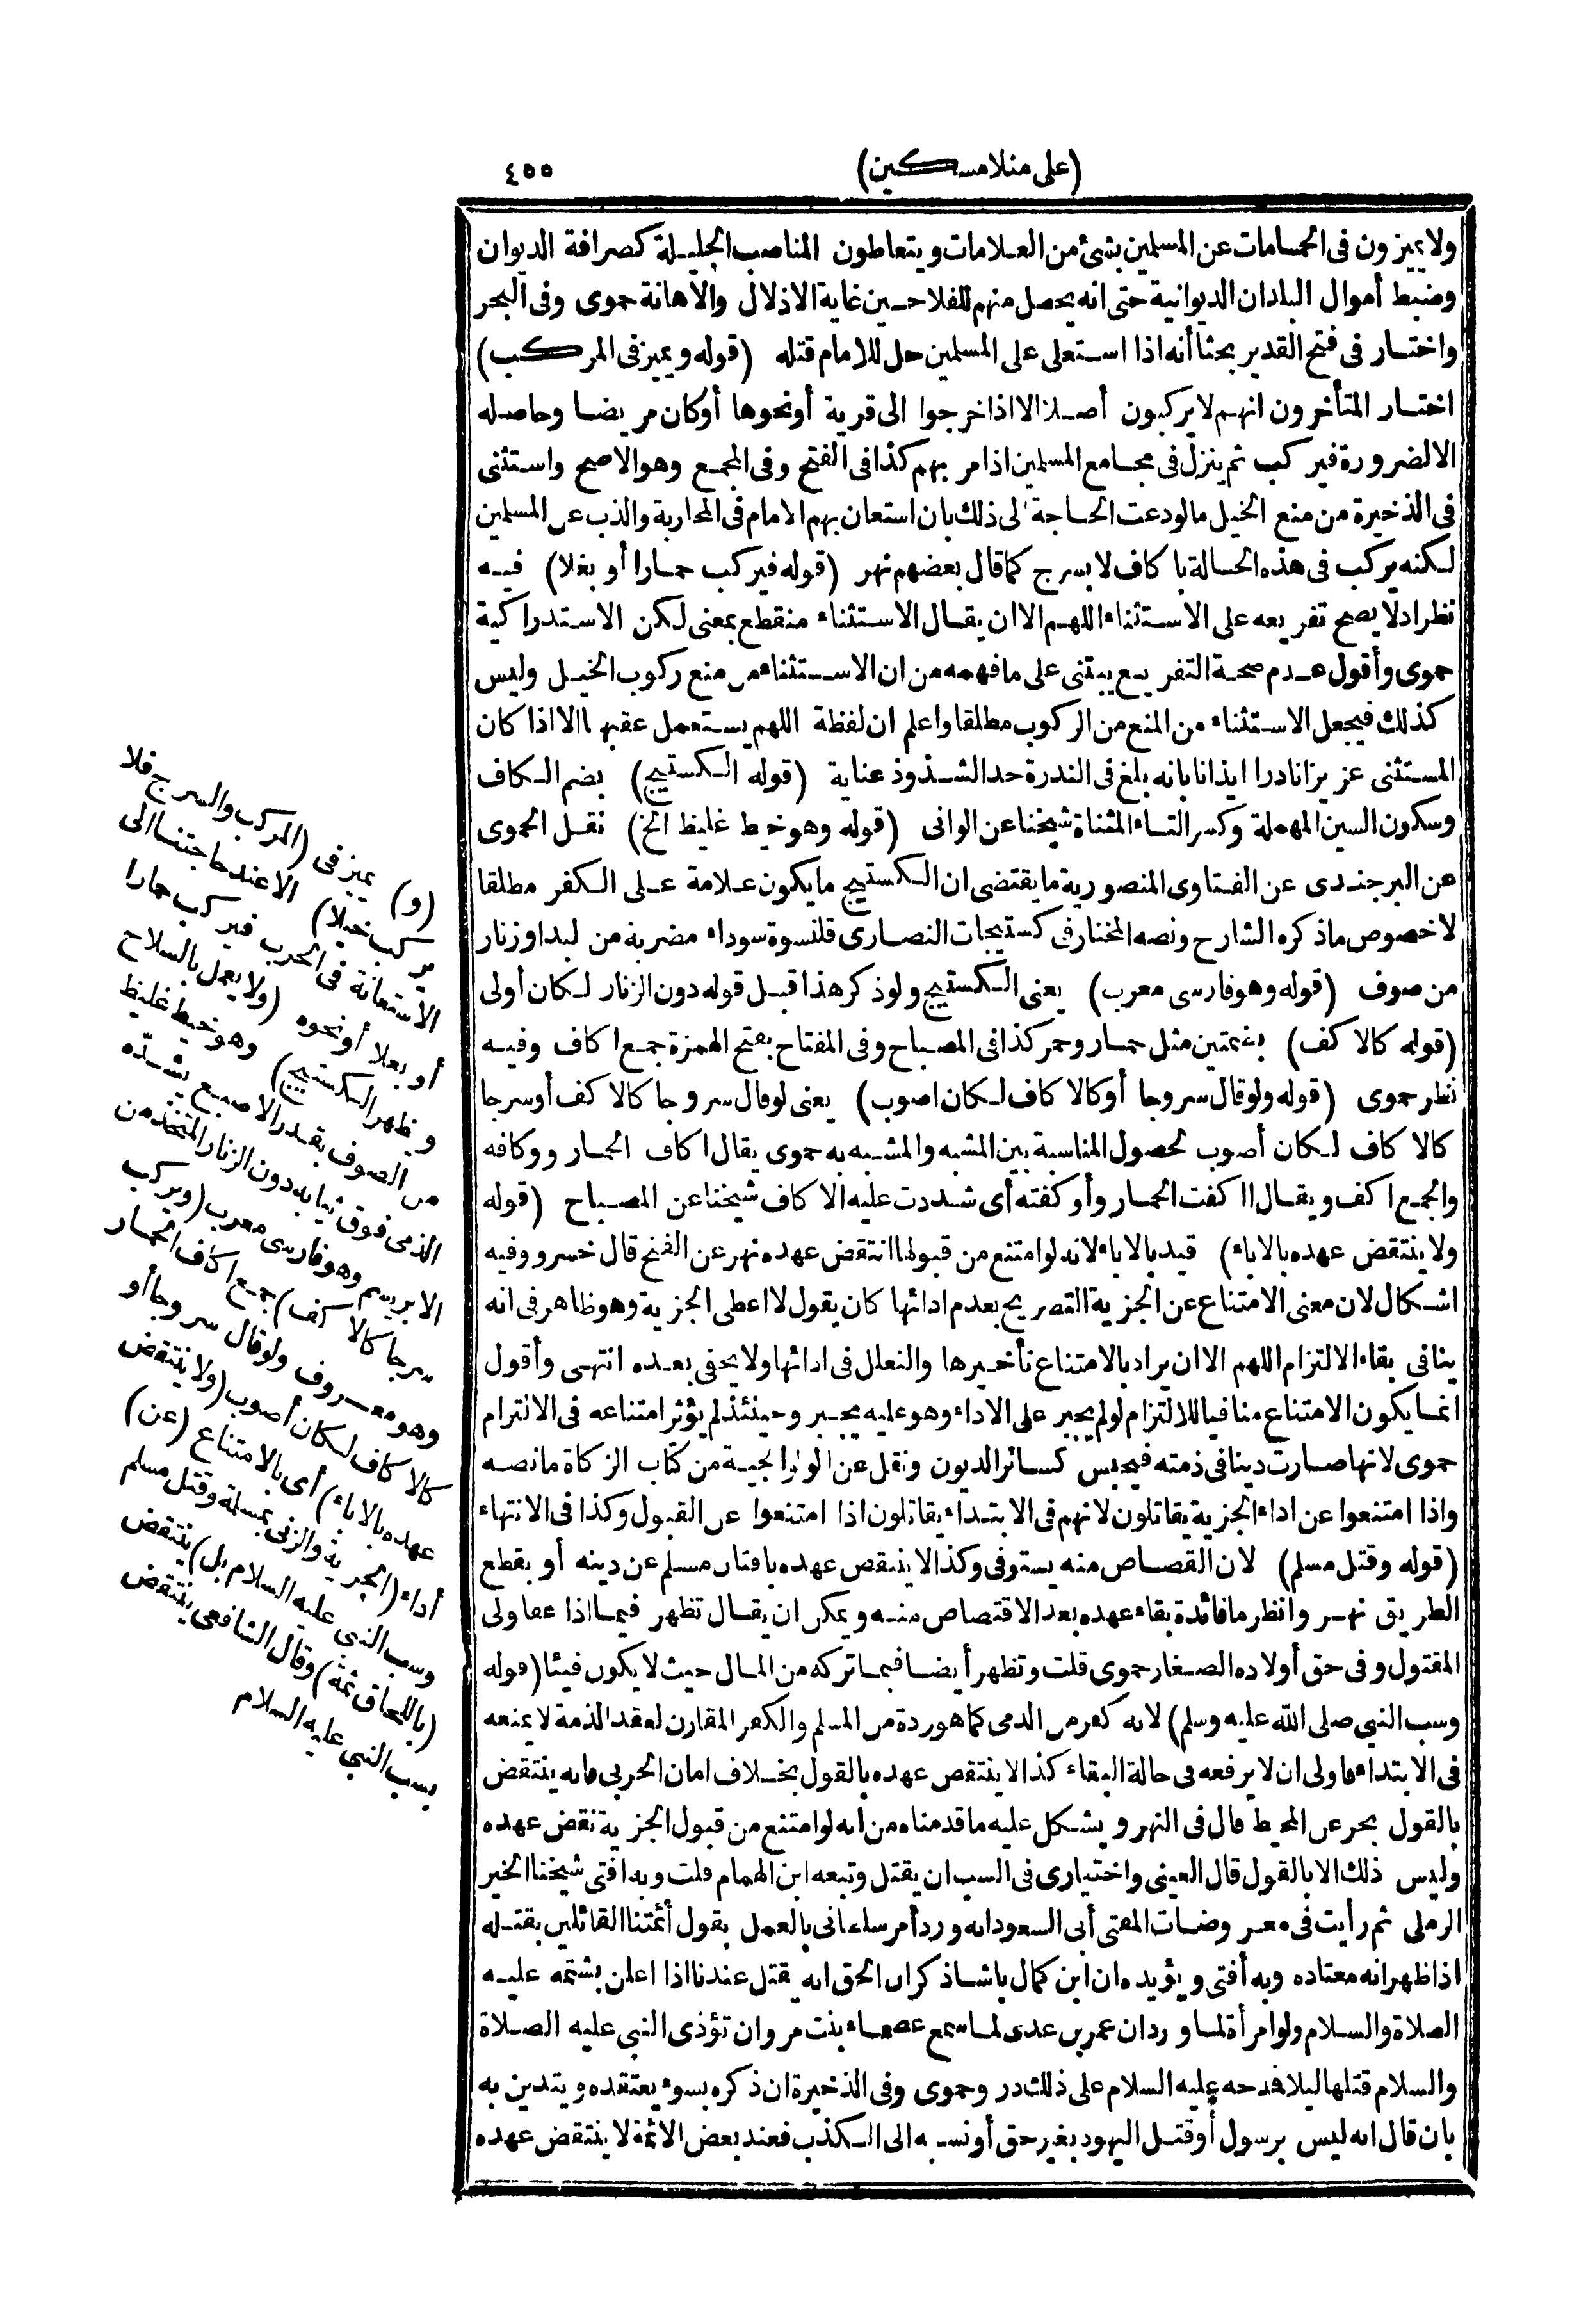 (على منلامسكين) ٤٥٥
ولايميزون فى الحمامات عن المسلمين بشئ من العلامات ويتعاطون المناصب الجليلة كصرافة الديوان
وضبط أموال البلدان الديوانية حتى انه يحصل منهم للفلاحين غاية الاذلال والاهانة حموى وفى البحر
واختار فى فتح القدير بحثا أنه اذا استعلى على المسلمين حل للامام قتله (قوله ويميزفى المركب)
اختار المتأخرون انهم لايركبون أصلا الااذا خرجوا الى قرية أونحوها أوكان مريضا وحاصله
الالضرورة فيركب ثم ينزل فى مجامع المسلمين اذا مر بهم كذافى الفتح وفى المجمع وهوالاصح واستثنى
فى الذخيرة من منع الخيل مالودعت الحاجة الى ذلك بان استعان بهم الامام فى المحاربة والذب عن المسلمين
لكنه يركب فى هذه الحالة با كاف لابسرج كماقال بعضهم نهر (قوله فيركب حمارا أو بغلا) فيه
نظر اذلا يصح تفريعه على الاستثناء اللهم الاان يقال الاستثناء منقطع بمعنى لكن الاستدراكية
حموى وأقول عدم صحة التفريع يبتنى على مافهمه من ان الاستثناء من منع ركوب الخيل وليس
كذلك فيجعل الاستثناء من المنع من الركوب مطلقا واعلم ان لفظة اللهم يستعمل عقبها الااذا كان
المستثنى عزيزا نادرا ايذانا بانه بلغ فى الندرة حد الشذوذ عناية (قوله الكستيج) بضم الكاف
وسكون السين المهملة وكسر التاء المثناة شيخنا عن الوانى (قوله وهو خيط غليظ الخ) نقل الحموى
عن البرجندى عن الفتاوى المنصورية مايقتضى ان الكستيج مايكون علامة على الكفر مطلقا
لاخصوص ماذكره الشارح ونصه المختار فى كستيجات النصارى قلنسوة سوداء مضربة من لبد اوزنار
من صوف (قوله وهوفارسى معرب) يعنى الكستيج ولوذكر هذا قبل قوله دون الزنار لكان أولى
(قوله كالاكف) بضمتين مثل حمار وحمر كذافى المصباح وفى المفتاح بفتح الهمزة جمع اكاف وفيه
نظر حموى (قوله ولوقال سروجا أوكالاكاف لكان اصوب) يعنى لوقال سروجا كالاكف أوسرجا
كالاكاف لكان أصوب لحصول المناسبة بين المشبه والمشبه به حموى يقال اكاف الحمار ووكافه
والجمع اكف ويقال اكفت الحمار وأوكفته أى شددت عليه الاكاف شيخنا عن المصباح (قوله
ولاينتقض عهده بالاباء) قيد بالاباء لانه لوامتنع من قبولها انتقض عهده نهر عن الفتح قال خسرو وفيه
اشكال لان معنى الامتناع عن الجزية التصريح بعدم ادائها كان يقول لااعطى الجزية وهوظاهر فى انه
ينافى بقاء الالتزام اللهم الاان يراد بالامتناع تأخيرها والتعلل فى ادائها ولا يخفى بعده انتهى وأقول
انما يكون الامتناع منافيا للالتزام لولم يجبر على الاداء وهو عليه يجبر وحينئذ لم يؤثر امتناعه فى الالتزام
حموى لانها صارت دينا فى ذمته فيحبس كسائر الديون ونقل عن الولوالجية من كتاب الزكاة مانصه
واذا امتنعوا عن اداء الجزية يقاتلون لانهم فى الابتداء يقاتلون اذا امتنعوا عن القبول وكذا فى الانتهاء
(قوله وقتل مسلم) لان القصاص منه يستوفى وكذا لاينتقض عهده بافتان مسلم عن دينه أو بقطع
الطريق نهر وانظر مافائدة بقاء عهده بعد الاقتصاص منه ويمكن ان يقال تظهر فيما اذا عفا ولى
المقتول وفى حق أولاده الصغار حموى قلت وتظهر أيضا فيما تركه من المال حيث لا يكون فيئا (قوله
وسب النبى صلى الله عليه وسلم) لانه كفر من الذمى كما هو ردة من المسلم والكفر المقارن لعقد الذمة لا يمنعه
فى الابتداء فاولى ان لا يرفعه فى حالة البقاء كذا لاينتقض عهده بالقول بخلاف امان الحربى فانه ينتقض
بالقول بحر عن المحيط قال فى النهر ويشكل عليه ماقدمناه من انه لوامتنع من قبول الجزية نقض عهده
وليس ذلك الابالقول قال العينى واختيارى فى السب ان يقتل وتبعه ابن الهمام قلت وبه افتى شيخنا الخير
الرملى ثم رأيت فى معروضات المفتى أبى السعود انه ورد أمر سلطانى بالعمل بقول أئمتنا القائلين بقتله
اذا ظهر انه معتاده وبه أفتى ويؤيده ان ابن كمال باشا ذكر ان الحق انه يقتل عندنا اذا اعلن بشتمه عليه
الصلاة والسلام ولوامرأة لما وردان عمر بن عدى لما سمع عصماء بنت مروان تؤذى النبى عليه الصلاة
والسلام قتلها ليلا فمدحه عليه السلام على ذلك در وحموى وفى الذخيرة ان ذكره بسوء يعتقده ويتدين به
بان قال انه ليس برسول أو قتل اليهود بغير حق أو نسبه الى الكذب فعند بعض الائمة لاينتقض عهده
(و) يميزفى (المركب والسرج فلا
يركب خيلا) الاعند حاجتنا الى
الاستعانة فى الحرب فيركب حمارا
أو بغلا أونحوه (ولايعمل بالسلاح
ويظهر الكستيج) وهو خيط غليظ
من الصوف بقدر الاصبع يشده
الذمى فوق ثيابه دون الزنار المتخذ من
الابريسم وهوفارسى معرب (ويركب
سرجا كالاكف) جمع اكاف الحمار
وهو معروف ولوقال سروجا أو
كالاكاف لكان أصوب (ولاينتقض
عهده بالاباء) أى بالامتناع (عن)
أداء (الجزية والزنى بمسلمة وقتل مسلم
وسب النبى عليه السلام بل) ينتقض
(باللحاق ثمة) وقال الشافعى ينتقض
بسب النبى عليه السلام